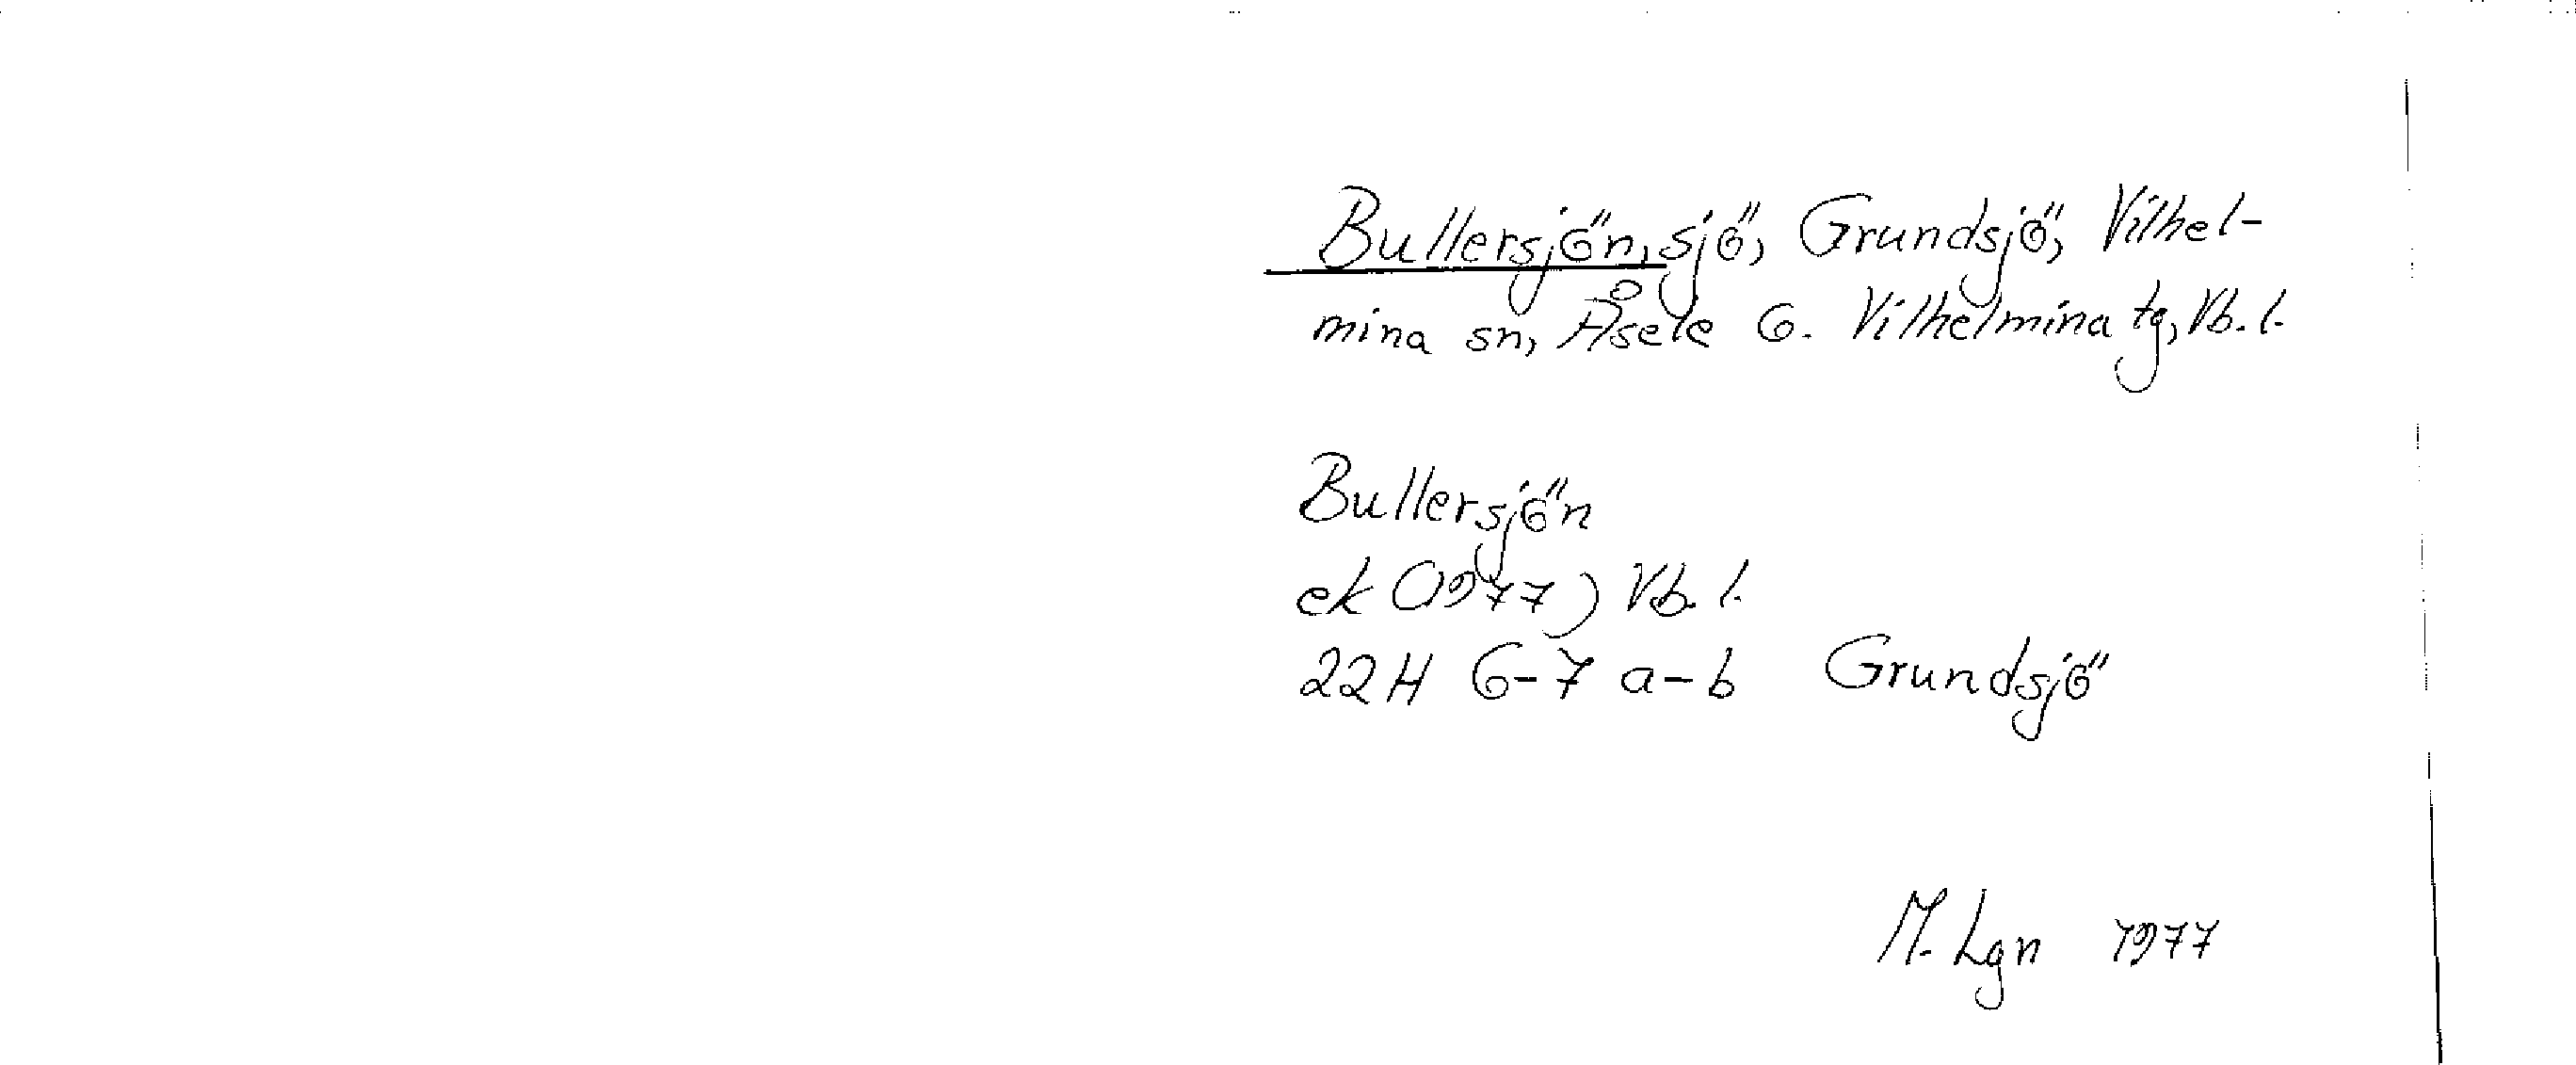 Bullersjön, sjö, Grundsjö, Vilhel-
mina sn, Åsele o. Vilhelmina tg, Vb. l.
Bullersjön
ek (1977) Vb. l.
22H 6-7 a-b Grundsjö
M. Lgn 1977